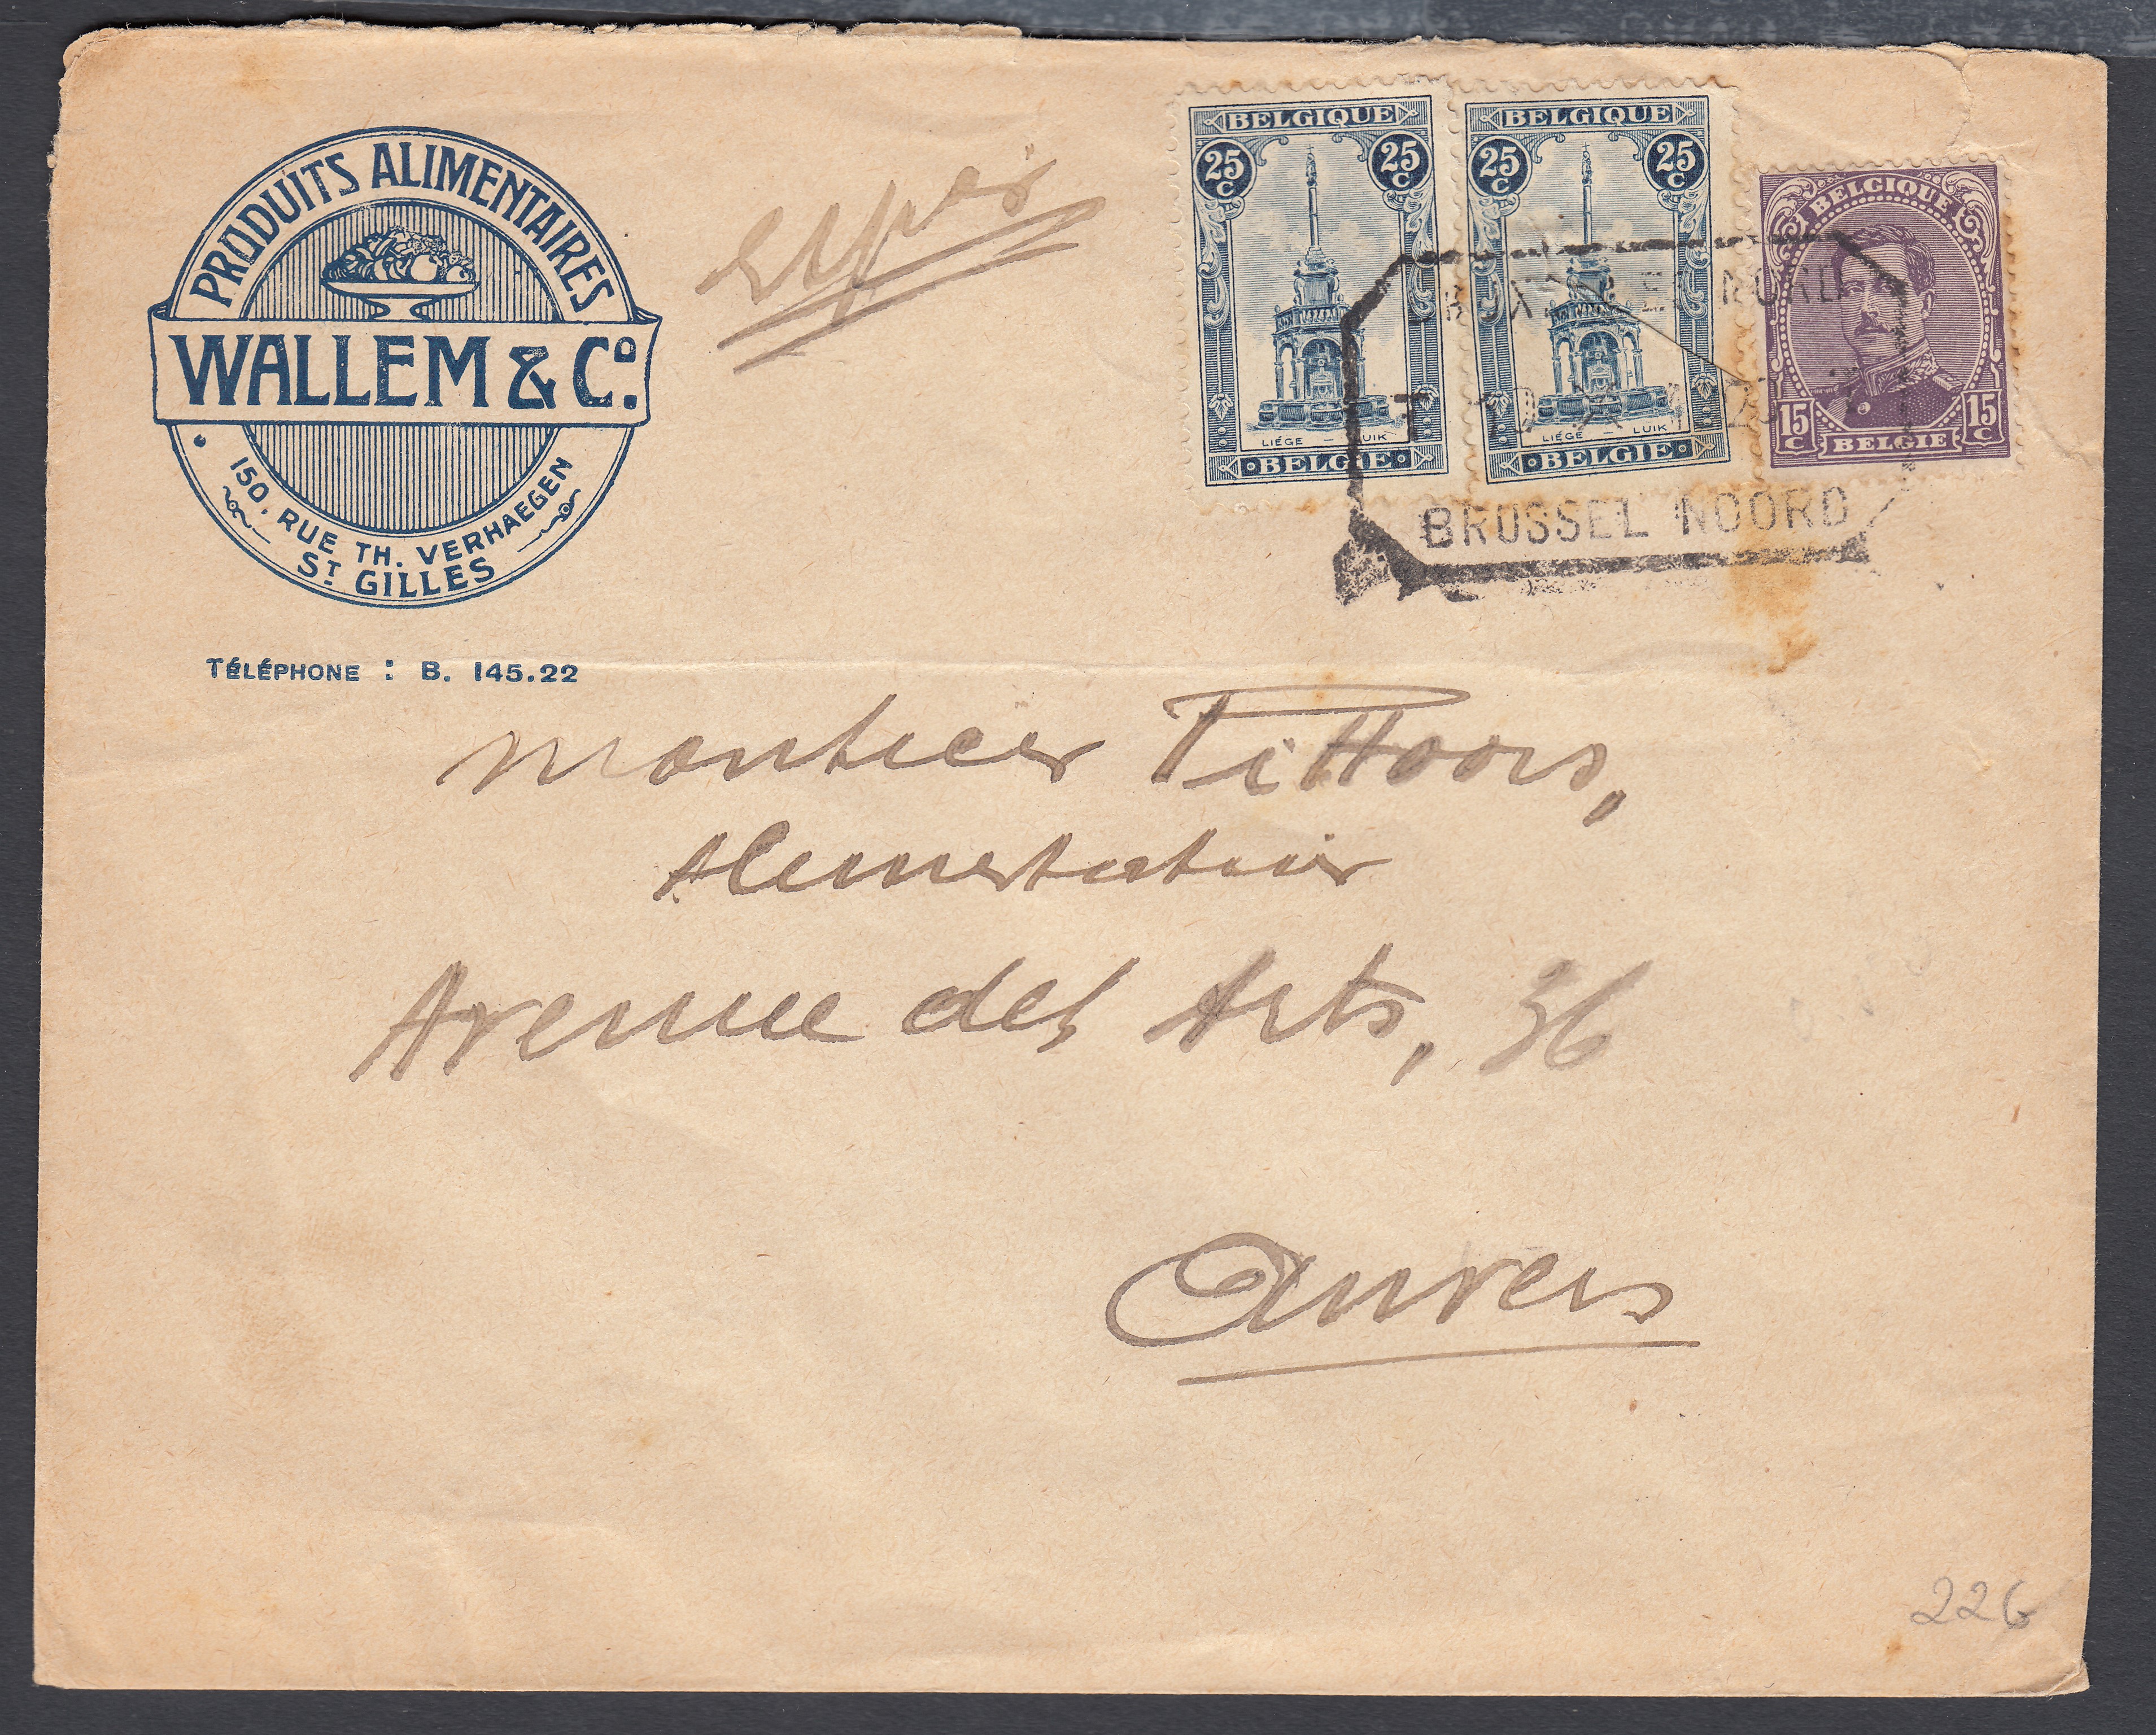 PRODUITS ALIMENTAIRES
WALLEM & Cº.
150, RUE TH. VERHAEGEN
ST GILLES
TÉLÉPHONE : B. 145.22
exprès
BELGIQUE
25 C 25 C
LIÉGE – LUIK
BELGIE
BELGIQUE
25 C 25 C
LIÉGE – LUIK
BELGIE
BELGIQUE
15 C 15 C
BELGIE
NORD
BRUSSEL NOORD
Pittoors,
Avenue des Arts, 36
Anvers
226